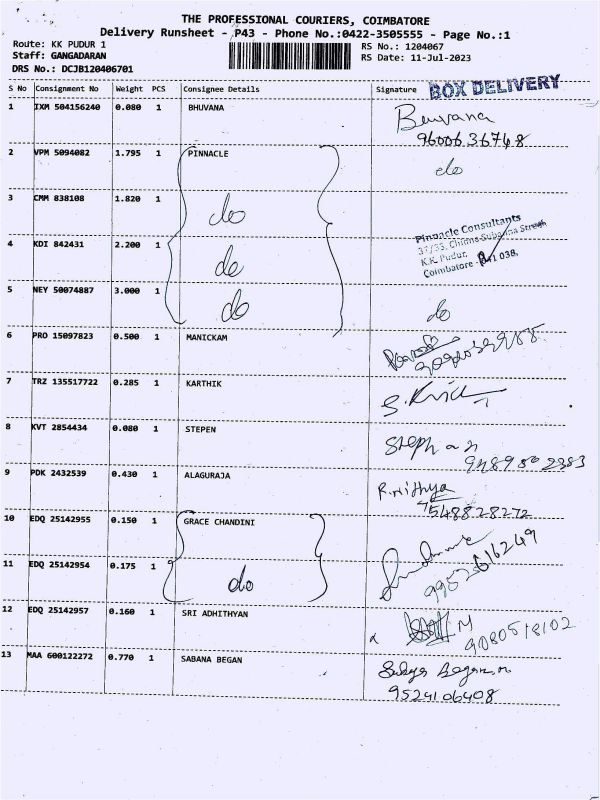 THE PROFESSIONAL COURIERS, COIMBATORE
Delivery Runsheet - P43 - Phone No.:0422-3505555 - Page No.:1
Route: KK PUDUR 1
RS No.: 1204067
Staff: GANGADARAN
RS Date: 11-Jul-2023
DRS No.: DCJB120406701
BOX DELIVERY
S No Consignment No Weight PCS Consignee Details Signature
1 IXM 504156240 0.080 1 BHUVANA Buvana
9600636748
2 VPM 5094082 1.795 1 PINNACLE do
3 CMM 838108 1.820 1 do
Pinnacle Consultants
4 KDI 842431 2.200 1 do
K.K. Pudur,
Coimbatore - 641 038.
5 NEY 50074887 3.000 1 do do
6 PRO 15097823 0.500 1 MANICKAM
7 TRZ 135517722 0.285 1 KARTHIK
8 KVT 2854434 0.080 1 STEPEN Stephan
9489502383
9 PDK 2432539 0.430 1 ALAGURAJA R.nithya
7548828272
10 EDQ 25142955 0.150 1 GRACE CHANDINI
9952616249
11 EDQ 25142954 0.175 1 do
12 EDQ 25142957 0.160 1 SRI ADHITHYAN M
9080518102
13 MAA 600122272 0.770 1 SABANA BEGAN
9524106408